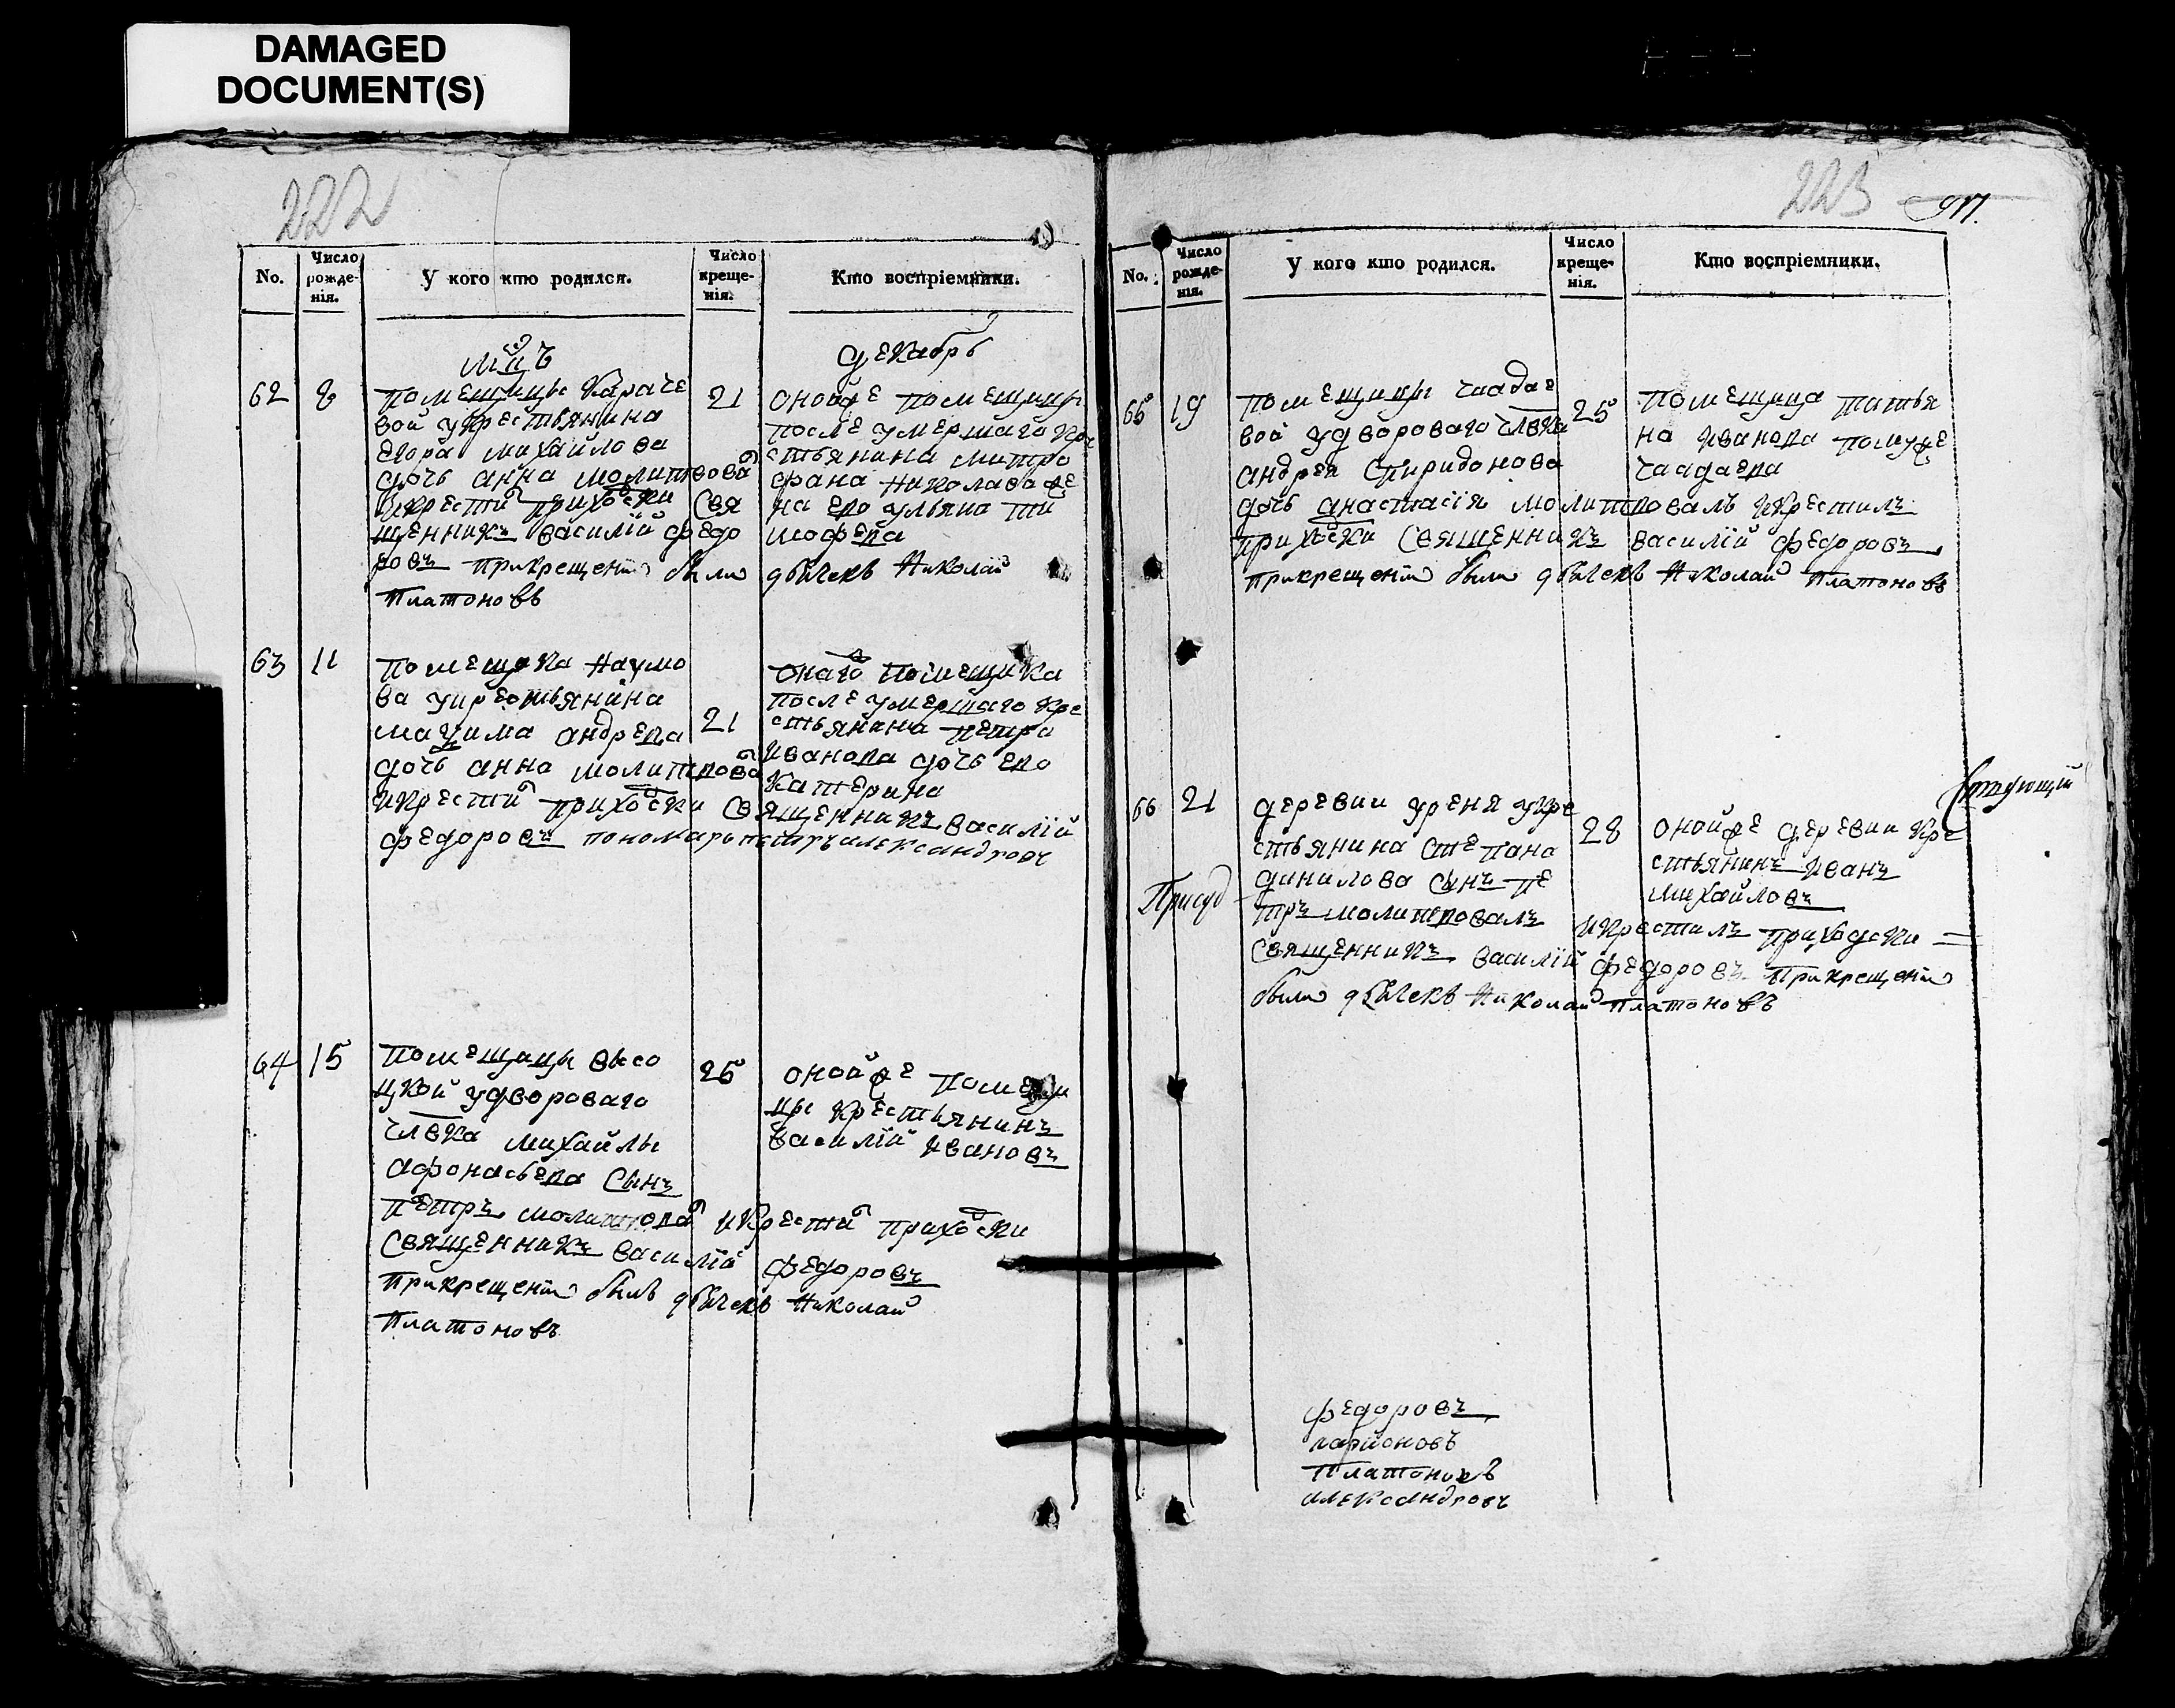 DAMAGED
DOCUMENT(S)
222
No.
Число
рожде-
нія.
У кого кто родился.
Число
креще-
нія.
Кто воспріемники.
Декабрь
62 8
помещицы Караче
вой укрестьянина
Егора михайлова
дочь анна молитвова
икрести прихоски Свя
щенникъ василий федо
ровъ прикрещении были дьячекъ Николай
Платоновъ
21
онойже помещицы
после умершаго кре
стьянина митро
фана Николаева же
на его ульяна ти
мофева
63 11
помещика Наумо
ва укрестьянина
андрева
дочь анна молитвова
икрести прихоски Священникъ василій
федоровъ пономарь петръ александровъ
21
онаго помещика
после умершаго кре
стьянина петра
иванова дочь его
катерина
64 15
помещицы высо
цкой удвороваго
члвка михайлы
афонасьева Сынъ
петръ молитвова икрести прихоски
священникъ василій федоровъ
прикрещении былъ дьячекъ Николай
Платоновъ
25
онойже помещи
цы крестьянинъ
василій ивановъ
223
No.
Число
рожде-
нія.
У кого кто родился.
Число
креще-
нія.
Кто воспріемники.
65 19
помещицы чаадае
вой удвороваго члвка
андрея Спиридонова
дочь анастасія молитвовалъ икрестилъ
прихоски священникъ василій федоровъ
прикрещении были дьячекъ Николай Платоновъ
25
помещица татья
на иванова
чаадаева
66 21
деревни уреня укре
стьянина степана
данилова Сынъ пе
тръ молитвовалъ икрестилъ приходски
священникъ василій федоровъ прикрещении
были дьячекъ Николай Платоновъ
28
онойже деревни кре
стьянинъ иванъ
михайловъ
Присуд
ствующий
федоровъ
ларионовъ
Платоновъ
александровъ